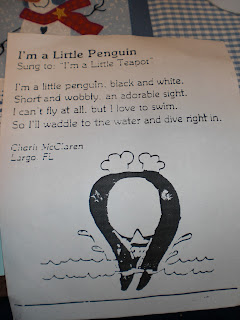 I'm a Little Penguin
Sung to: "I'm a Little Teapot"
I'm a little penguin, black and white,
Short and wobbly, an adorable sight.
I can't fly at all, but I love to swim,
So I'll waddle to the water and dive right in.
Charli McClaren
Largo, FL